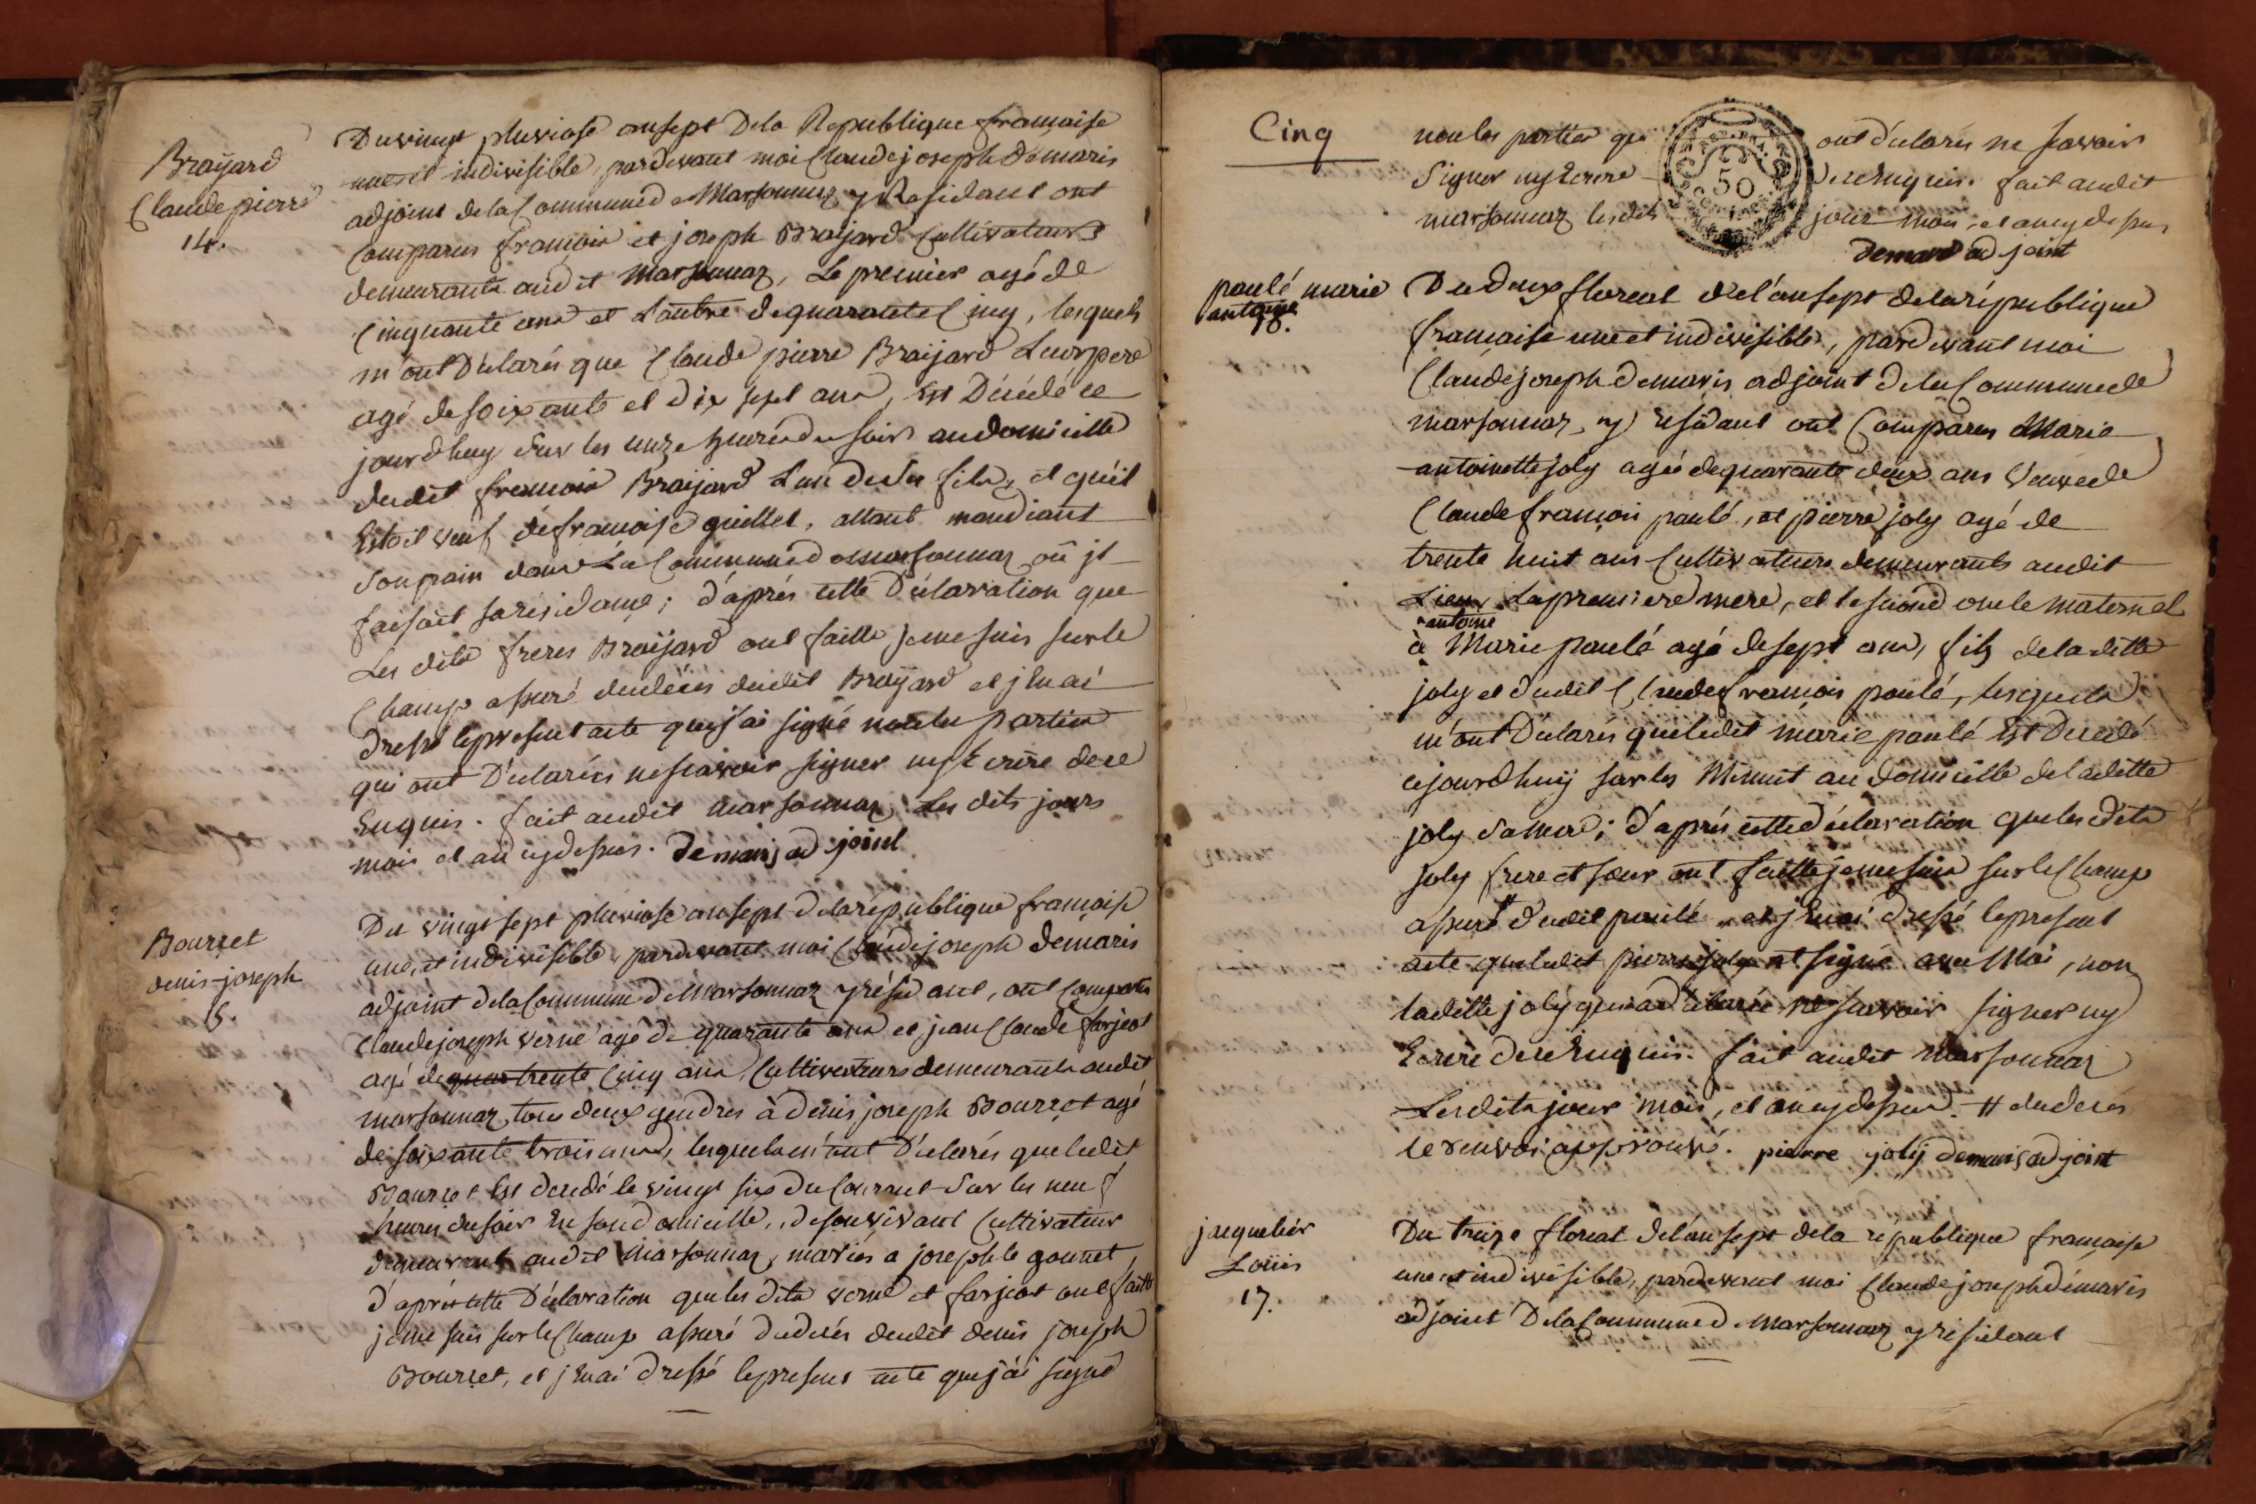 Braijard
Claude pierre
14.
Du vingt pluviose an sept Dela Republique francaise
une et indivisible, pardevant moi Claude joseph Demaris
adjoint dela Commune de Marsonnaz y Residant ont
Comparus francois et joseph Braijard Cultivateurs
demeurants audit Marsonnaz, Le premier agé de
Cinquante ans et L'autre de quarante Cinq, lesquels
m'ont Déclarés que Claude pierre Braijard Leur pere
agé de soixante et dix sept ans, Est Décédé ce
jourdhuy sur les unze heures du soir au domicille
dudit francois Braijard L'un de ses fils, et qu'il
Etoit veuf de francoise guillet, allant mandiant
Son pain dans La Commune de marsonnaz où jl
faisoit sa residance; d'après cette Déclaration que
Les dits freres Braijard ont faitte je me suis sur le
Champ assuré du décès dudit Braijard et j'en ai
dressé le present acte que j'ai signé non les parties
qui ont Déclarées ne scavoir signer ny Ecrire de ce
Enquis. fait audit Marsonnaz, Les dits jours
mois et an cy dessus. Demaris adjoint
Bourcet
denis joseph
15.
Du vingt sept pluviose an sept dela république francoise
une, et indivisible pardevant moi Claude joseph Demaris
adjoint dela Commune de Marsonnaz y résidant, ont Comparus
Claude joseph verne agé de quarante ans et jean Claude farjeot
agé de trente Cinq ans, Cultivateurs demeurants audit
marsonnaz, tous deux gendres à denis joseph Bourcet agé
de soixante trois ans, lesquels m'ont Déclarés que ledit
Bourcet Est décédé le vingt six du Courant Sur les neuf
heures du soir En son domicille, de son vivant Cultivateur
demeurant audit Marsonnaz, mariés a josephte gounet
d'après cette Déclaration que les dits verne et farjeot ont faitte
je me suis sur le Champ assuré du decès dudit denis joseph
Bourcet, et j'en ai dressé le present acte que j'ai signé
Cinq
non les parties qui ont déclarés ne scavoir
Signer ny Ecrire De ce Enquis. fait audit
marsonnaz les dits jour mois, et an cy dessus
50
Demaris adjoint
paulé marie
antoine
16.
Du Deux floreal de l'an sept dela république
francaise une et indivisible, pardevant moi
Claude joseph Demaris adjoint dela Commune de
marsonnaz, y résidant ont Comparus Marie
antoinette joly agée de quarante deux ans veuve de
Claude francois paulé, et pierre joly agé de
trente huit ans Cultivateurs demeurants audit
Lieu, La premiere mere, et le second oncle maternel
antoine
à Marie paulé agé de sept ans, fils de laditte
joly et dudit Claude francois paulé, lesquels
m'ont Déclarés que ledit marie paulé Est Décédé
cejourdhuy sur les Minuit au domicille de laditte
joly Sa mere; d'après cette déclaration que les dits
joly frere et soeur ont faitte je me suis sur le Champ
assuré # dudit paulé et j'en ai dressé le present
acte que ledit pierre joly at signé avec Moi, non
laditte joly qui a déclarée ne scavoir signer ny
Ecrire de ce Enquis. fait audit Marsonnaz
Les dits jour mois, et an cy dessus. # du deces
le renvoi approuvé. pierre joly Demaris adjoint
jacquelier
Loüis
17.
Du treize floreal de l'an sept dela république francaise
une et indivisible, pardevant moi Claude joseph démaris
adjoint Dela Commune de Marsonnaz y residant